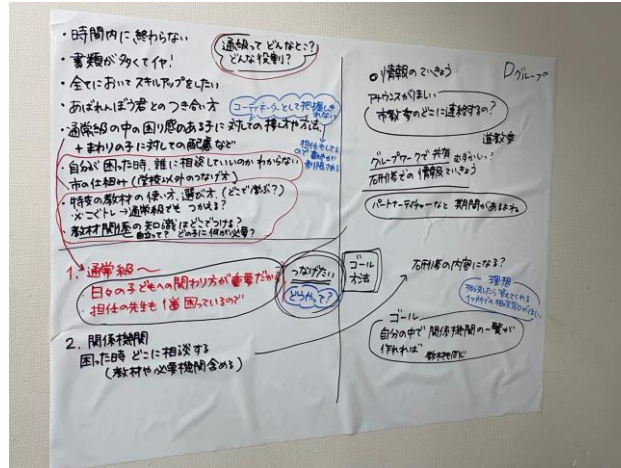 ・時間内に終わらない
・書類が多くてイヤ!
・全てにおいてスキルアップをしたい
・あばれんぼう君とのつき合い方
・通常級の中の困り感のある子に対しての接し方や方法、
+まわりの子に対しての配慮など
・自分が困った時、誰に相談していいのかわからない
市の仕組み(学校以外のつなげ方)
・特支の教材の使い方、選び方、(どこで学ぶ?)
※ことトレ→通常級でもつかえる?
・教材関係の知識はどこでつける?
自立って? どの子に何が必要?
通級ってどんなとこ?
どんな役割?
コーディネーターとして把握しきれない
1. 通常級〜
・日々の子どもへの関わり方が重要だから
・担任の先生も1番困っているので
つなげたい
どうやって?
ゴール
方法
2. 関係機関
困った時どこに相談する
(教材や必要機関含める)
Dグループ
○情報のていきょう
アナウンスがほしい
市教委のどこに連絡するの?
道教委
グループワークで共有
研修での情報ていきょう
パートナーティーチャーなど 期間があるよね
研修の内容になる?
理想
相談したら答えてくれる
ゴール
自分の中で関係機関の一覧が
作れれば 教材など